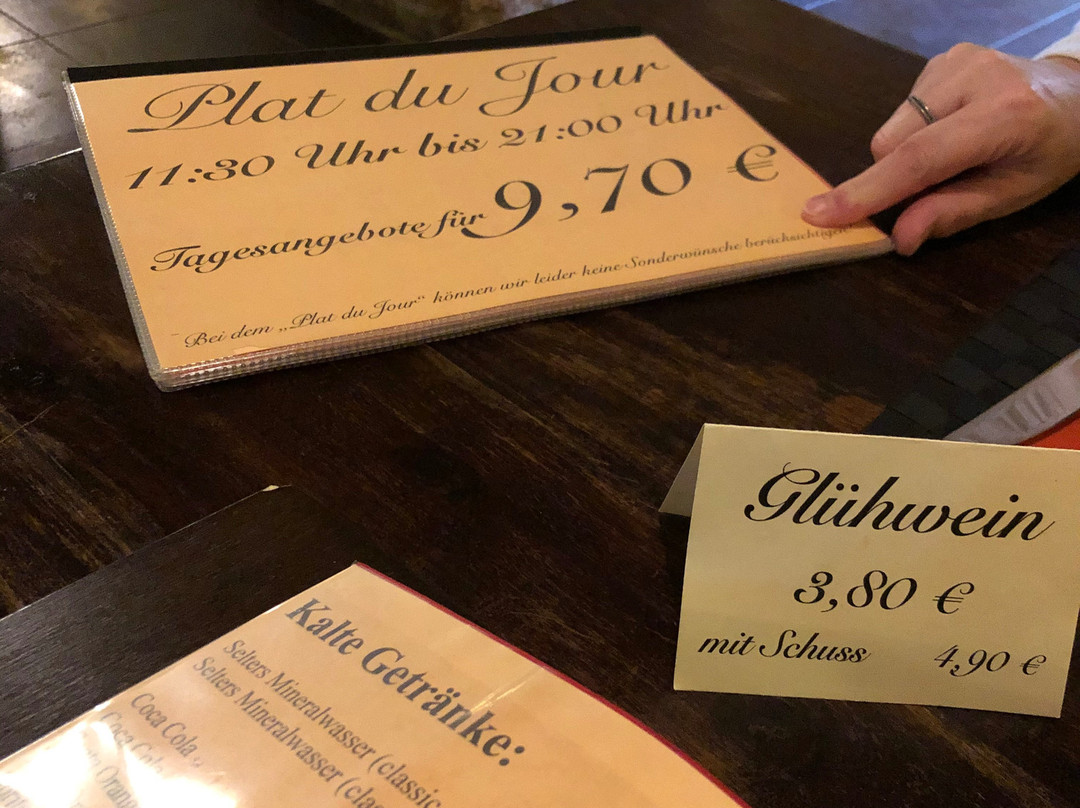 Plat du Jour
11:30 Uhr bis 21:00 Uhr
Tagesangebote für 9,70 €
Bei dem „Plat du Jour“ können wir leider keine Sonderwünsche berücksichtigen
Glühwein
3,80 €
mit Schuss 4,90 €
Kalte Getränke:
Selters Mineralwasser (classic
Selters Mineralwasser (clas
Coca Cola
Coca Cola